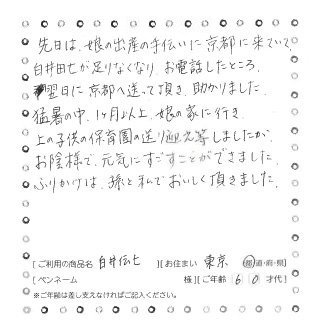 先日は、娘の出産の手伝いに京都に来ていて、
白井田七が足りなくなり、お電話したところ、
翌日に京都へ送って頂き、助かりました。
猛暑の中、1ヶ月以上、娘の家に行き、
上の子供の保育園の送り迎え等しましたが、
お陰様で、元気にすごすことができました。
ふりかけは、孫と私でおいしく頂きました。
[ご利用の商品名 白井伝七 ][お住まい 東京 都・道・府・県]
[ペンネーム 様][ご年齢 60才代]
※ご年齢は差し支えなければご記入ください。